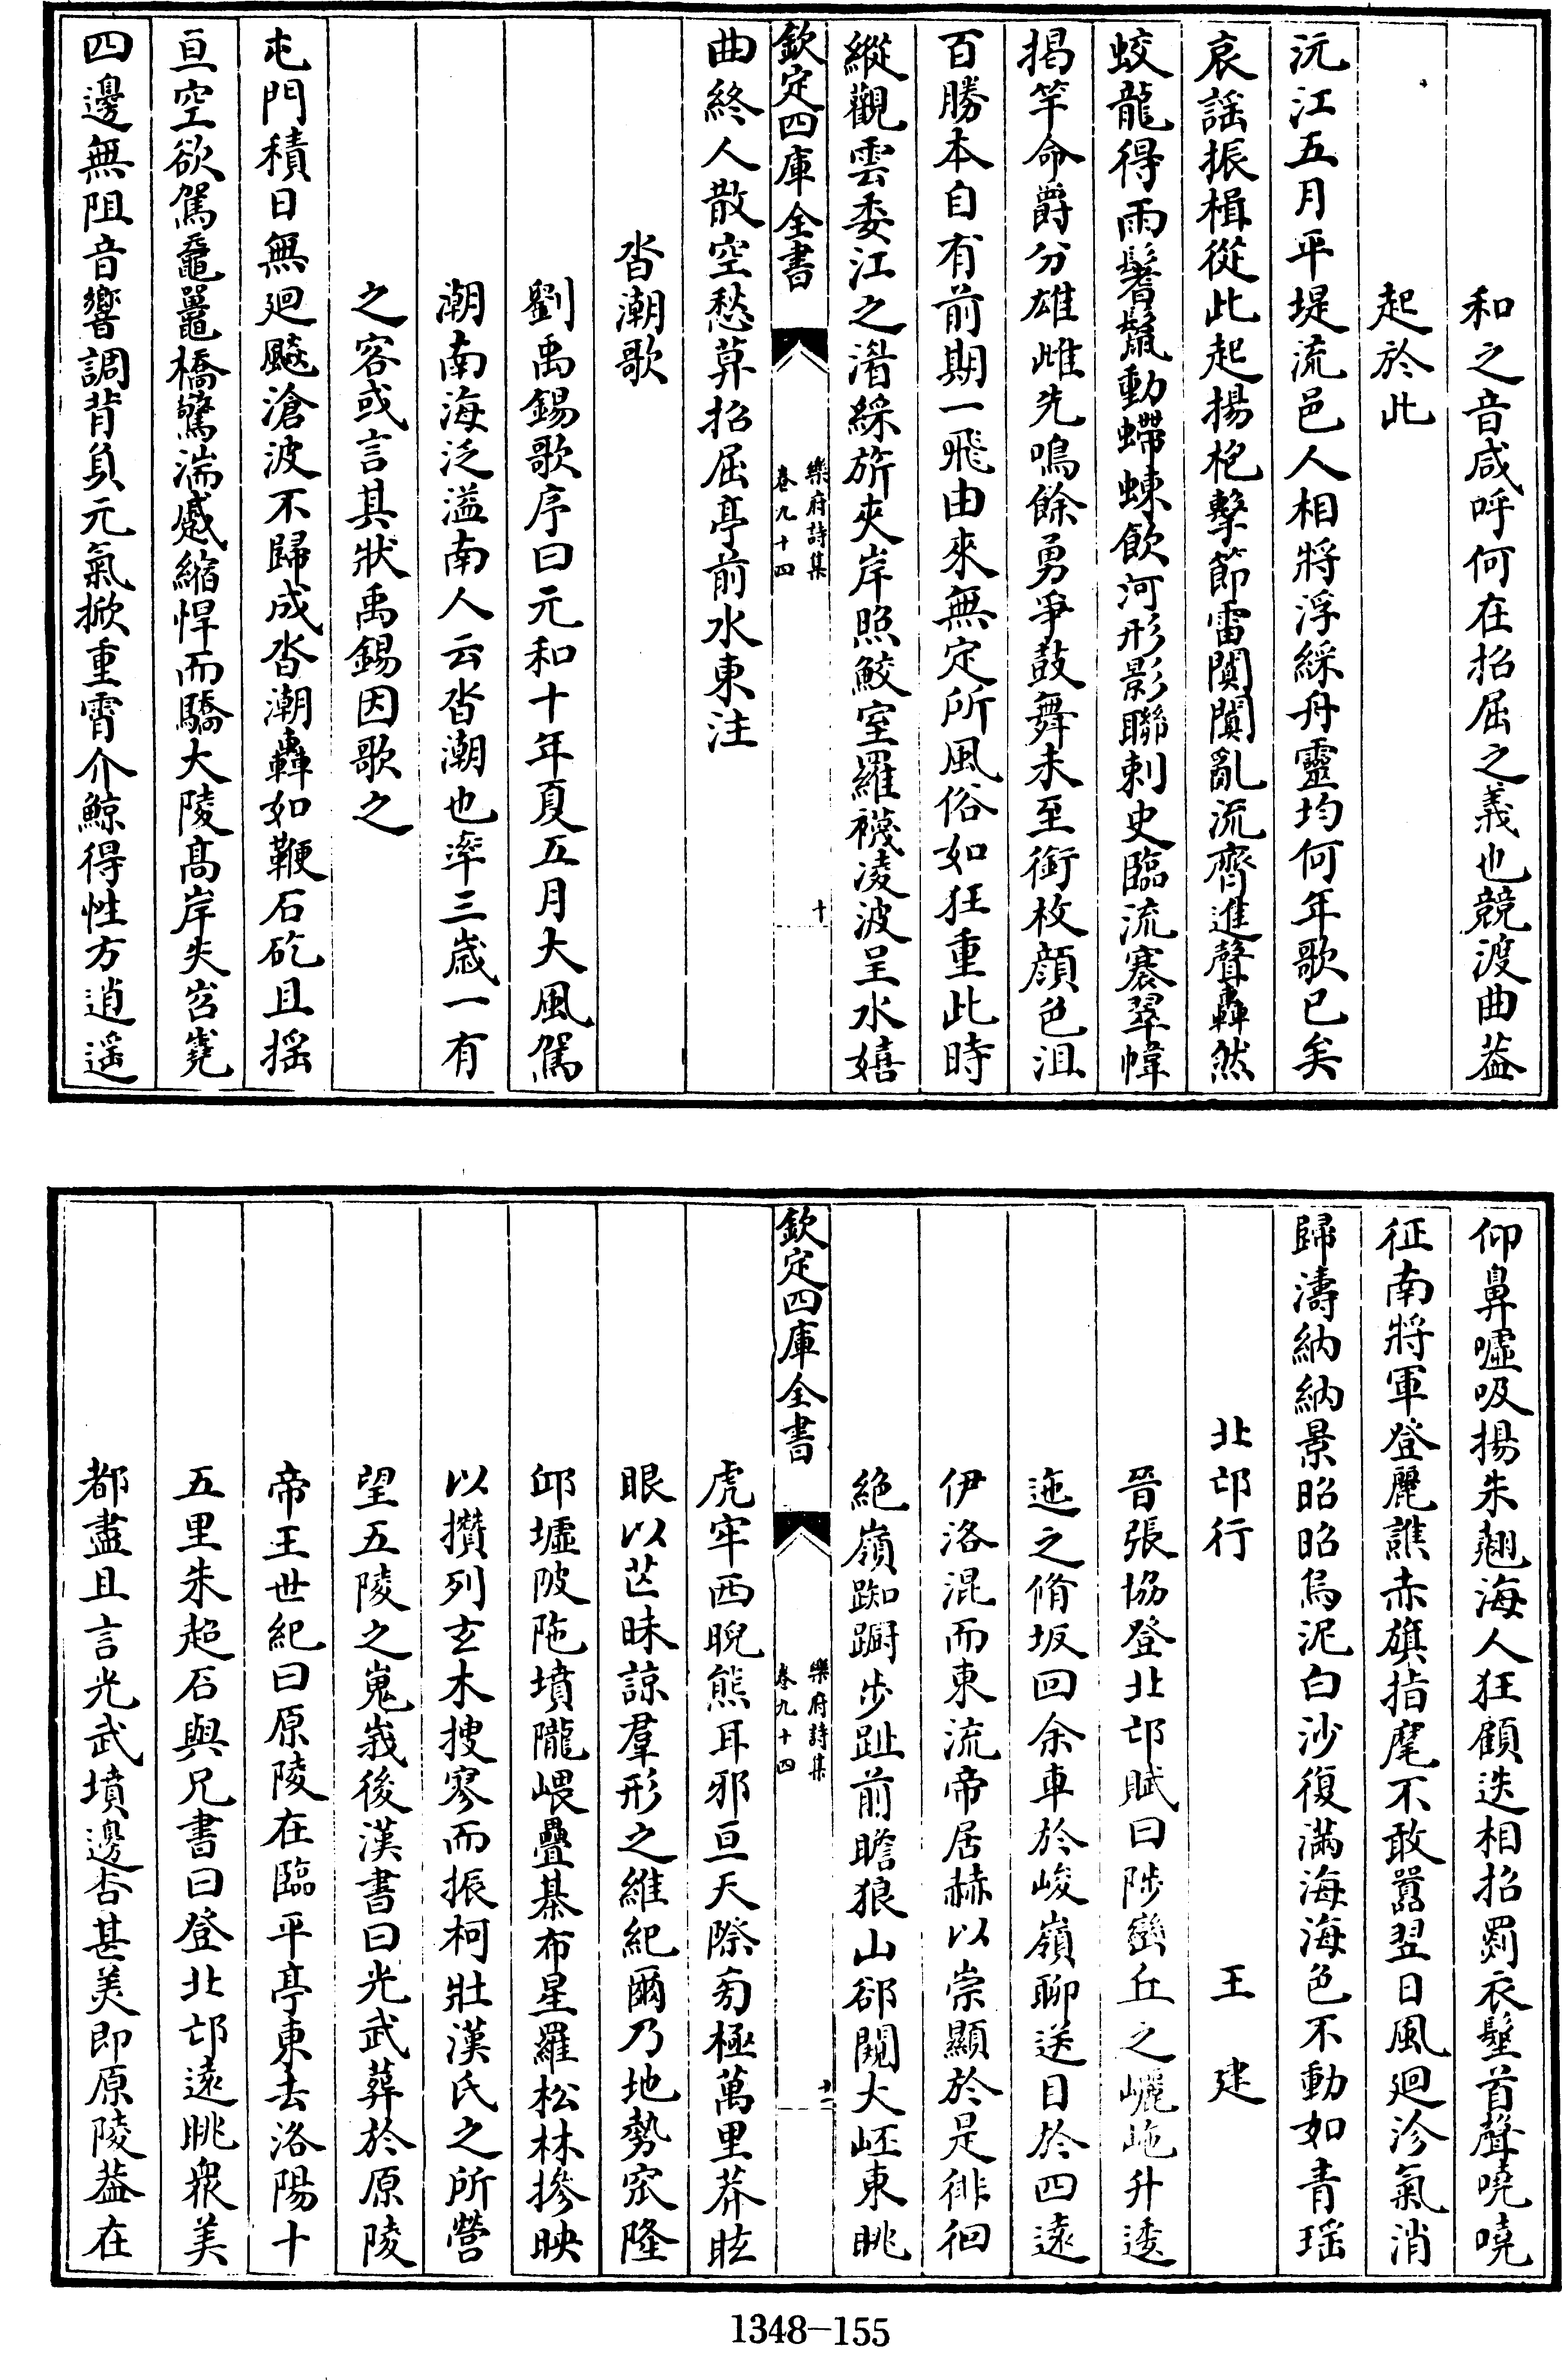 和之音咸呼何在招屈之義也競渡曲葢
起於此
沅江五月平堤流邑人相將浮綵舟靈均何年歌已矣
哀謡振楫從此起揚枹擊節雷闐闐亂流齊進聲轟然
蛟龍得雨鬐鬛動螮蝀飲河形影聯刺史臨流褰翠幃
揭竿命爵分雄雌先鳴餘勇爭鼓舞未至銜枚顔色沮
百勝本自有前期一飛由來無定所風俗如狂重此時
縱觀雲委江之湝綵旂夾岸照鮫室羅襪凌波呈水嬉
欽定四庫全書
樂府詩集
卷九十四
十
曲終人散空愁暮招屈亭前水東注
沓潮歌
劉禹錫歌序曰元和十年夏五月大風駕
潮南海泛溢南人云沓潮也率三歳一有
之客或言其狀禹錫因歌之
屯門積日無廻飈滄波不歸成沓潮轟如鞭石矻且揺
亘空欲駕黿鼉橋驚湍蹙縮悍而驕大陵髙岸失岧嶤
四邊無阻音響調背負元氣掀重霄介鯨得性方逍遥
仰鼻噓吸揚朱翹海人狂顧迭相招罽衣髽首聲嘵嘵
征南將軍登麗譙赤旗指麾不敢囂翌日風廻沴氣消
歸濤納納景昭昭烏泥白沙復滿海海色不動如青瑶
北邙行 王建
晉張協登北邙賦曰陟巒丘之𡾋崺升逶
迤之脩坂回余車於峻嶺聊送目於四逺
伊洛混而東流帝居赫以崇顯於是徘徊
絶嶺踟蹰步趾前瞻狼山郤闚大岯東眺
欽定四庫全書
樂府詩集
卷九十四
十一
虎牢西睨熊耳邪亘天際旁極萬里莽眩
眼以芒昧諒羣形之維紀爾乃地勢窊隆
邱墟陂陁墳隴㟪疊棊布星羅松林摻映
以攢列玄木搜寥而振柯壯漢氏之所營
望五陵之嵬峩後漢書曰光武葬於原陵
帝王世紀曰原陵在臨平亭東去洛陽十
五里朱超石與兄書曰登北邙逺眺衆美
都盡且言光武墳邊杏甚美即原陵葢在
1348—155